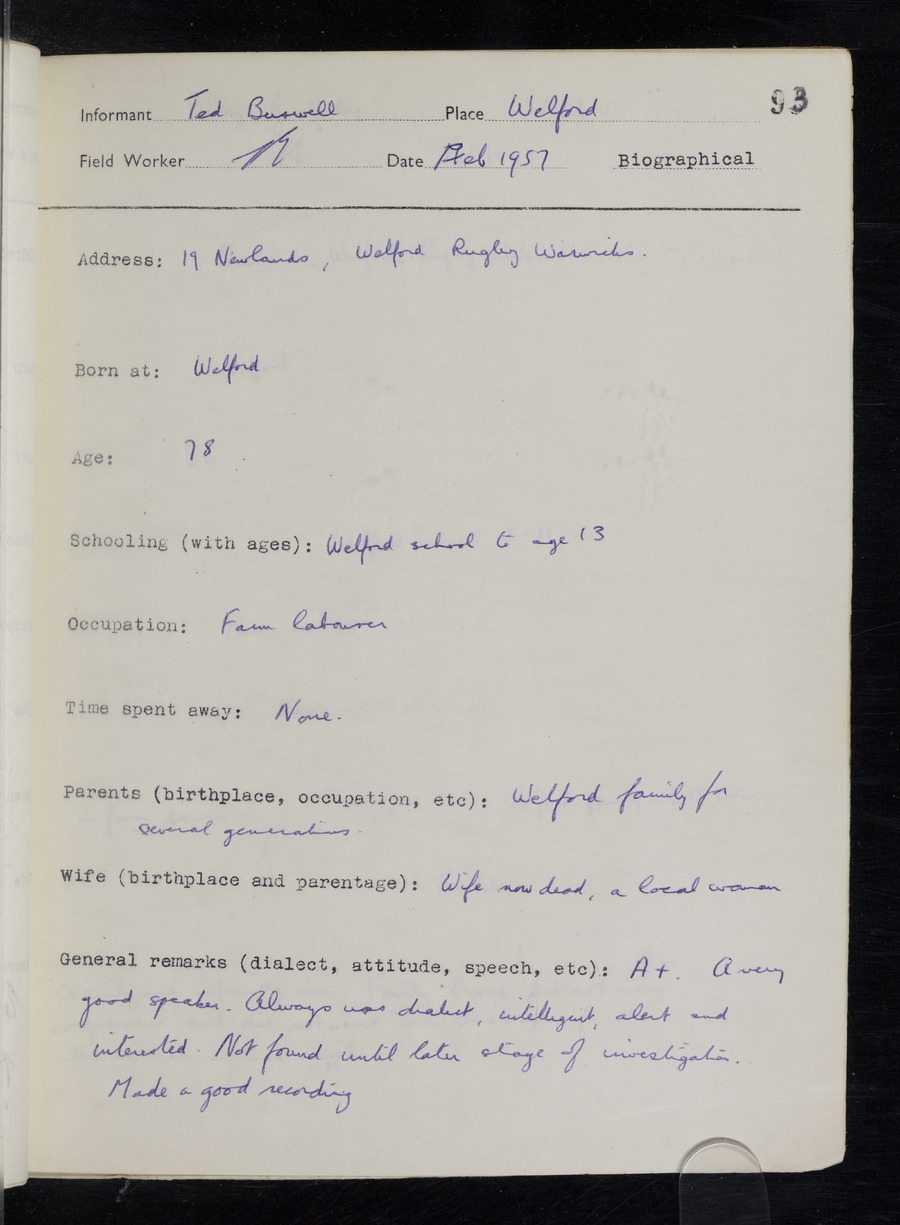 Informant Ted Buswell Place Welford 93
Field Worker Date Feb 1957 Biographical
Address: 19 Newlands, Welford Rugby Warwicks.
Born at: Welford
Age: 78
Schooling (with ages): Welford school to age 13
Occupation: Farm labourer
Time spent away: None.
Parents (birthplace, occupation, etc): Welford family for
several generations.
Wife (birthplace and parentage): Wife now dead, a local woman
General remarks (dialect, attitude, speech, etc): A+. A very
good speaker. Always uses dialect, intelligent, alert and
interested. Not found until later stage of investigation.
Made a good recording